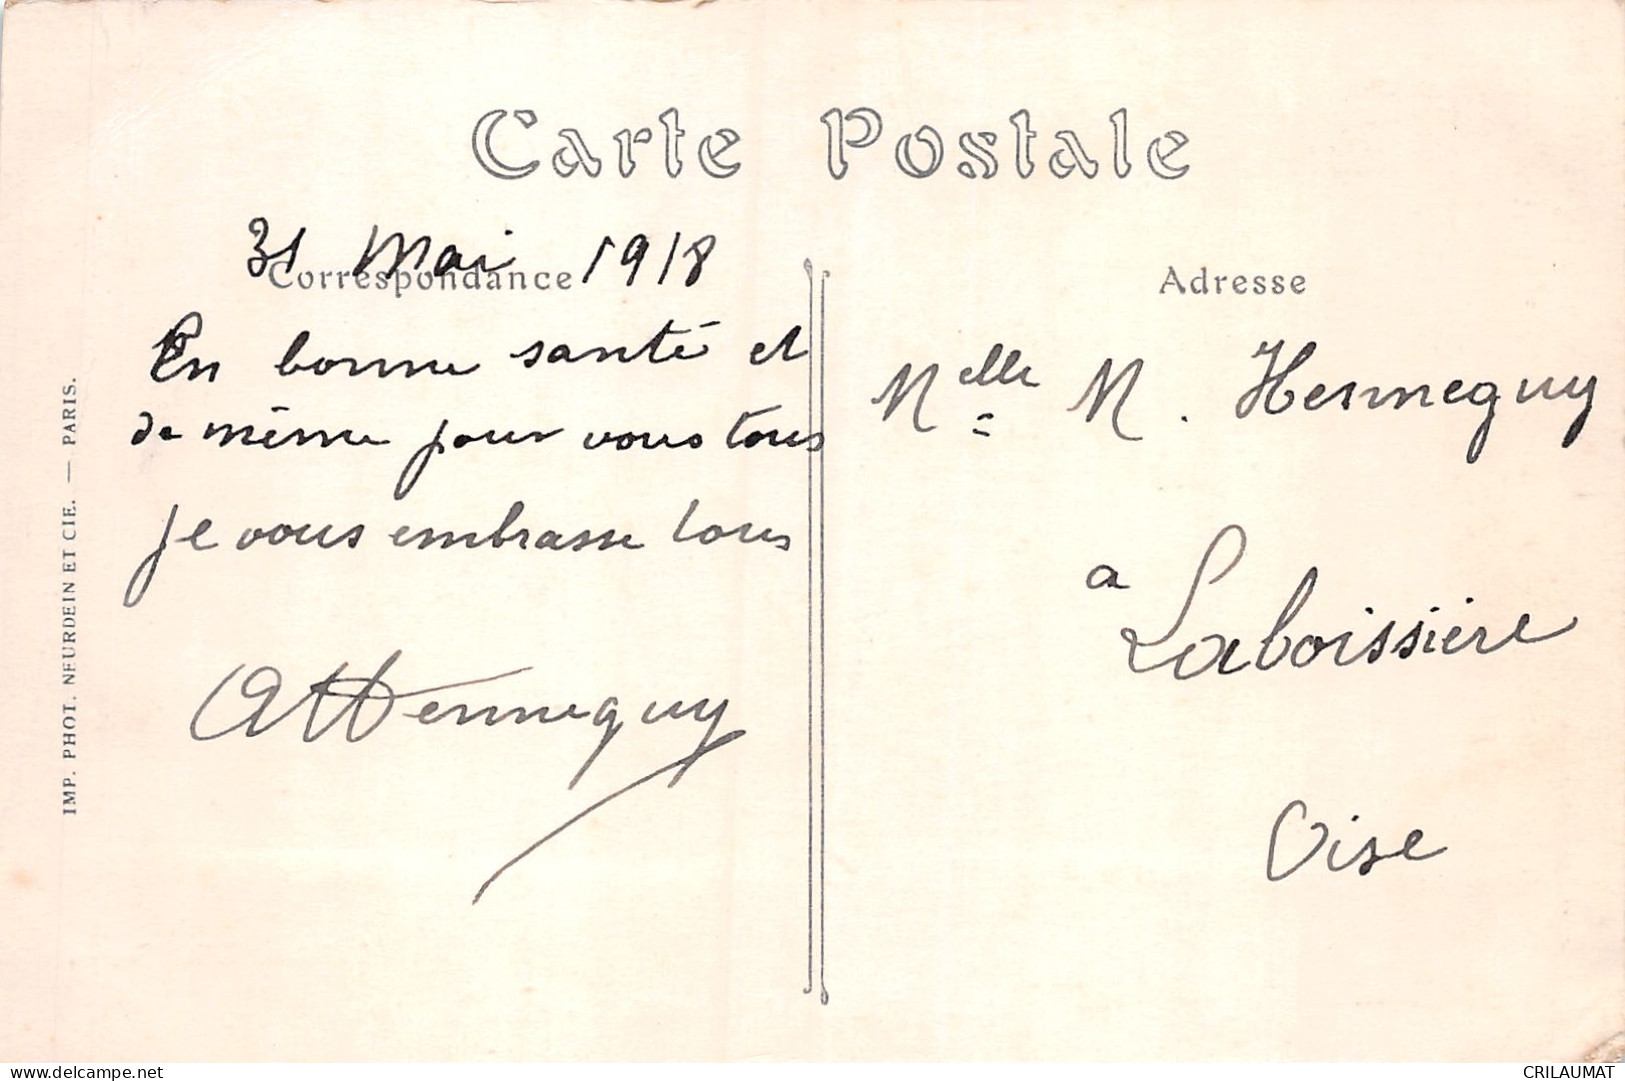 Carte Postale
31 Mai 1918
Correspondance
En bonne santé et
de même pour vous tous
je vous embrasse tous
AHennequy
Adresse
Melle M. Hennequy
a
Laboissière
Oise
IMP. PHOT. NEURDEIN ET CIE. — PARIS.
delcampe.net
CRILAUMAT